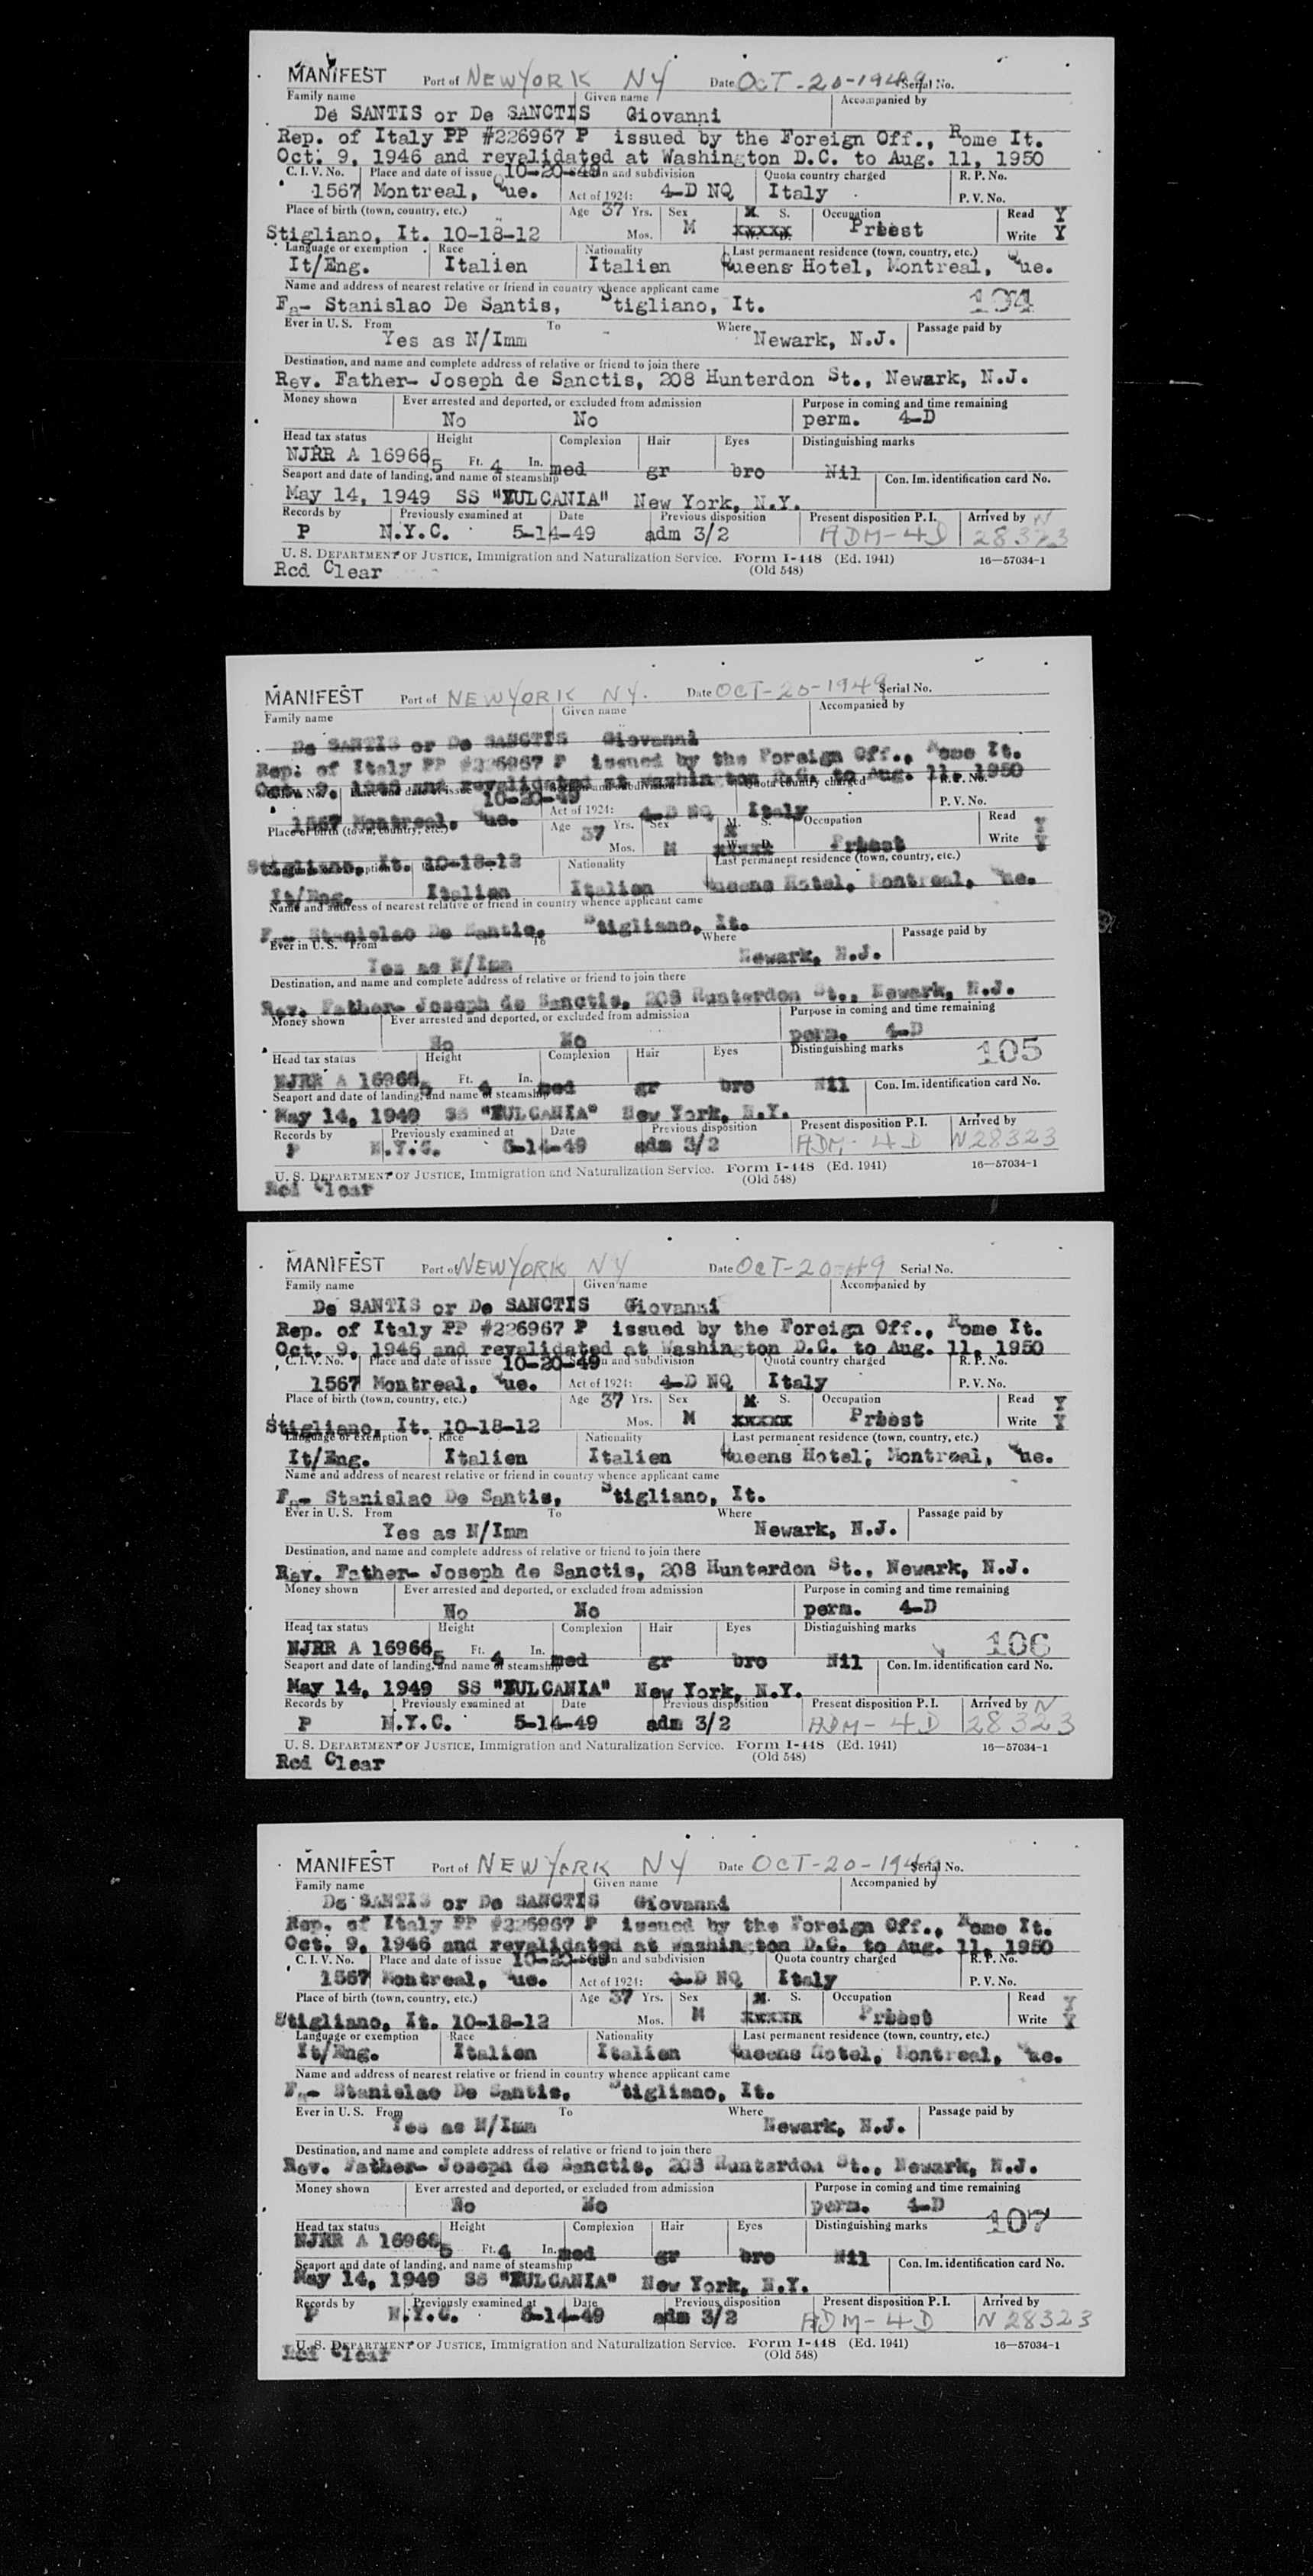 MANIFEST Port of NEW YORK NY Date OCT-20-1949 Serial No.
Family name Given name Accompanied by
De SANTIS or De SANCTIS Giovanni
Rep. of Italy PP #226967 P issued by the Foreign Off., Rome It.
Oct. 9, 1946 and revalidated at Washington D.C. to Aug. 11, 1950
C. I. V. No. Place and date of issue 10-20-49 and subdivision Quota country charged R. P. No.
1567 Montreal, Que. Act of 1924: 4-D NQ Italy P. V. No.
Place of birth (town, country, etc.) Age 37 Yrs. Sex M. S. Occupation Read Y
Stigliano, It. 10-18-12 Mos. M xxxxx Priest Write Y
Language or exemption Race Nationality Last permanent residence (town, country, etc.)
It/Eng. Italien Italien Queens Hotel, Montreal, Que.
Name and address of nearest relative or friend in country whence applicant came
Fa- Stanislao De Santis, Stigliano, It. 104
Ever in U. S. From To Where Passage paid by
Yes as N/Imm Newark, N.J.
Destination, and name and complete address of relative or friend to join there
Rev. Father- Joseph de Sanctis, 208 Hunterdon St., Newark, N.J.
Money shown Ever arrested and deported, or excluded from admission Purpose in coming and time remaining
No No perm. 4-D
Head tax status Height Complexion Hair Eyes Distinguishing marks
NJRR A 16966 5 Ft. 4 In. med gr bro Nil
Seaport and date of landing, and name of steamship Con. Im. identification card No.
May 14, 1949 SS "VULCANIA" New York, N.Y.
Records by Previously examined at Date Previous disposition Present disposition P. I. Arrived by N
P N.Y.C. 5-14-49 adm 3/2 ADM-4D 28323
U. S. DEPARTMENT OF JUSTICE, Immigration and Naturalization Service. Form I-448 (Ed. 1941) 16—57034-1
(Old 548)
Rcd Clear
MANIFEST Port of NEW YORK NY. Date OCT-20-1949 Serial No.
Family name Given name Accompanied by
De SANTIS or De SANCTIS Giovanni
Rep. of Italy PP #226967 P issued by the Foreign Off., Rome It.
Oct. 9, 1946 and revalidated at Washington D.C. to Aug. 11, 1950
Place and date of issue 10-20-49 and subdivision Quota country charged R. P. No.
1567 Montreal, Que. Act of 1924: 4-D NQ Italy P. V. No.
Place of birth (town, country, etc.) Age 37 Yrs. Sex M. S. Occupation Read Y
Stigliano, It. 10-18-12 Mos. M xxxxx W. D. Priest Write Y
Nationality Last permanent residence (town, country, etc.)
It/Eng. Italien Italien Queens Hotel, Montreal, Que.
Name and address of nearest relative or friend in country whence applicant came
Fa- Stanislao De Santis, Stigliano, It.
Ever in U. S. From To Where Passage paid by
Yes as N/Imm Newark, N.J.
Destination, and name and complete address of relative or friend to join there
Rev. Father- Joseph de Sanctis, 208 Hunterdon St., Newark, N.J.
Money shown Ever arrested and deported, or excluded from admission Purpose in coming and time remaining
No No perm. 4-D
Head tax status Height Complexion Hair Eyes Distinguishing marks 105
NJRR A 16966 5 Ft. 4 In. med gr bro Nil Con. Im. identification card No.
Seaport and date of landing, and name of steamship
May 14, 1949 SS "VULCANIA" New York, N.Y.
Records by Previously examined at Date Previous disposition Present disposition P. I. Arrived by
P N.Y.C. 5-14-49 adm 3/2 ADM-4D N28323
U. S. DEPARTMENT OF JUSTICE, Immigration and Naturalization Service. Form I-448 (Ed. 1941) 16—57034-1
(Old 548)
Rcd Clear
MANIFEST Port of NEW YORK NY Date OCT-20-49 Serial No.
Family name Given name Accompanied by
De SANTIS or De SANCTIS Giovanni
Rep. of Italy PP #226967 P issued by the Foreign Off., Rome It.
Oct. 9, 1946 and revalidated at Washington D.C. to Aug. 11, 1950
C. I. V. No. Place and date of issue 10-20-49 and subdivision Quota country charged R. P. No.
1567 Montreal, Que. Act of 1924: 4-D NQ Italy P. V. No.
Place of birth (town, country, etc.) Age 37 Yrs. Sex M. S. Occupation Read Y
Stigliano, It. 10-18-12 Mos. M xxxxx Priest Write Y
Language or exemption Race Nationality Last permanent residence (town, country, etc.)
It/Eng. Italien Italien Queens Hotel, Montreal, Que.
Name and address of nearest relative or friend in country whence applicant came
Fa- Stanislao De Santis, Stigliano, It.
Ever in U. S. From To Where Passage paid by
Yes as N/Imm Newark, N.J.
Destination, and name and complete address of relative or friend to join there
Rev. Father- Joseph de Sanctis, 208 Hunterdon St., Newark, N.J.
Money shown Ever arrested and deported, or excluded from admission Purpose in coming and time remaining
No No perm. 4-D
Head tax status Height Complexion Hair Eyes Distinguishing marks 106
NJRR A 16966 5 Ft. 4 In. med gr bro Nil
Seaport and date of landing, and name of steamship Con. Im. identification card No.
May 14, 1949 SS "VULCANIA" New York, N.Y.
Records by Previously examined at Date Previous disposition Present disposition P. I. Arrived by N
P N.Y.C. 5-14-49 adm 3/2 ADM-4D 28323
U. S. DEPARTMENT OF JUSTICE, Immigration and Naturalization Service. Form I-448 (Ed. 1941) 16—57034-1
(Old 548)
Rcd Clear
MANIFEST Port of NEW YORK NY Date OCT-20-1949 Serial No.
Family name Given name Accompanied by
De SANTIS or De SANCTIS Giovanni
Rep. of Italy PP #226967 P issued by the Foreign Off., Rome It.
Oct. 9, 1946 and revalidated at Washington D.C. to Aug. 11, 1950
C. I. V. No. Place and date of issue 10-20-49 and subdivision Quota country charged R. P. No.
1567 Montreal, Que. Act of 1924: 4-D NQ Italy P. V. No.
Place of birth (town, country, etc.) Age 37 Yrs. Sex M. S. Occupation Read Y
Stigliano, It. 10-18-12 Mos. M xxxxx Priest Write Y
Language or exemption Race Nationality Last permanent residence (town, country, etc.)
It/Eng. Italien Italien Queens Hotel, Montreal, Que.
Name and address of nearest relative or friend in country whence applicant came
Fa- Stanislao De Santis, Stigliano, It.
Ever in U. S. From To Where Passage paid by
Yes as N/Imm Newark, N.J.
Destination, and name and complete address of relative or friend to join there
Rev. Father- Joseph de Sanctis, 208 Hunterdon St., Newark, N.J.
Money shown Ever arrested and deported, or excluded from admission Purpose in coming and time remaining
No No perm. 4-D
Head tax status Height Complexion Hair Eyes Distinguishing marks 107
NJRR A 16966 5 Ft. 4 In. med gr bro Nil
Seaport and date of landing, and name of steamship Con. Im. identification card No.
May 14, 1949 SS "VULCANIA" New York, N.Y.
Records by Previously examined at Date Previous disposition Present disposition P. I. Arrived by
P N.Y.C. 5-14-49 adm 3/2 ADM-4D N28323
U. S. DEPARTMENT OF JUSTICE, Immigration and Naturalization Service. Form I-448 (Ed. 1941) 16—57034-1
(Old 548)
Rcd Clear